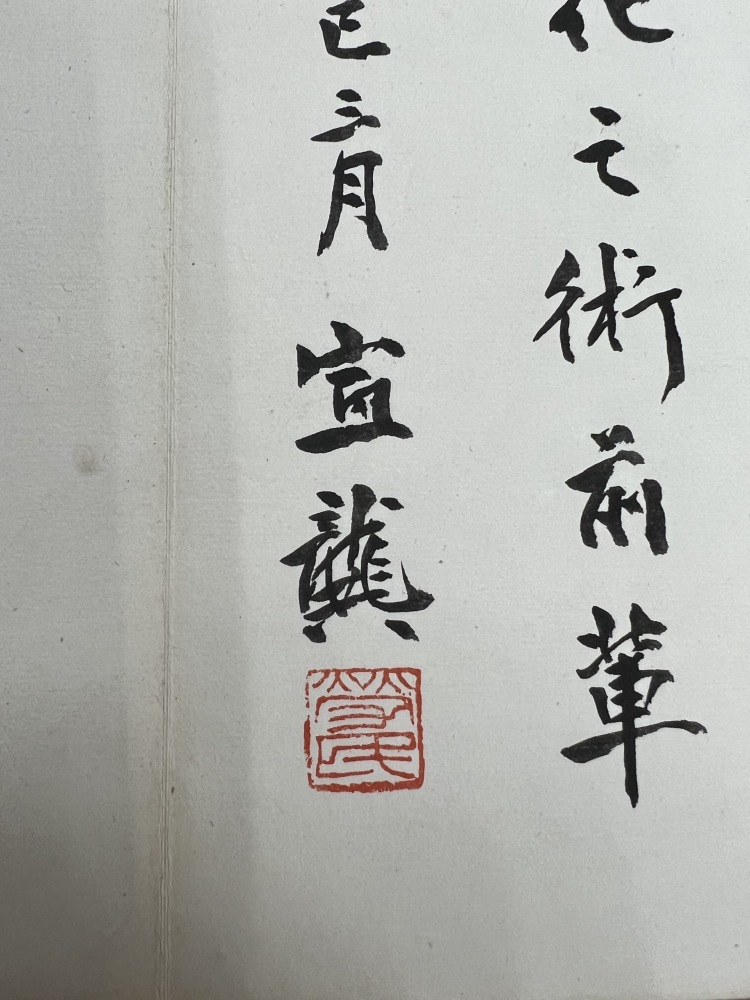 化之術前輩
巳三月宣龔